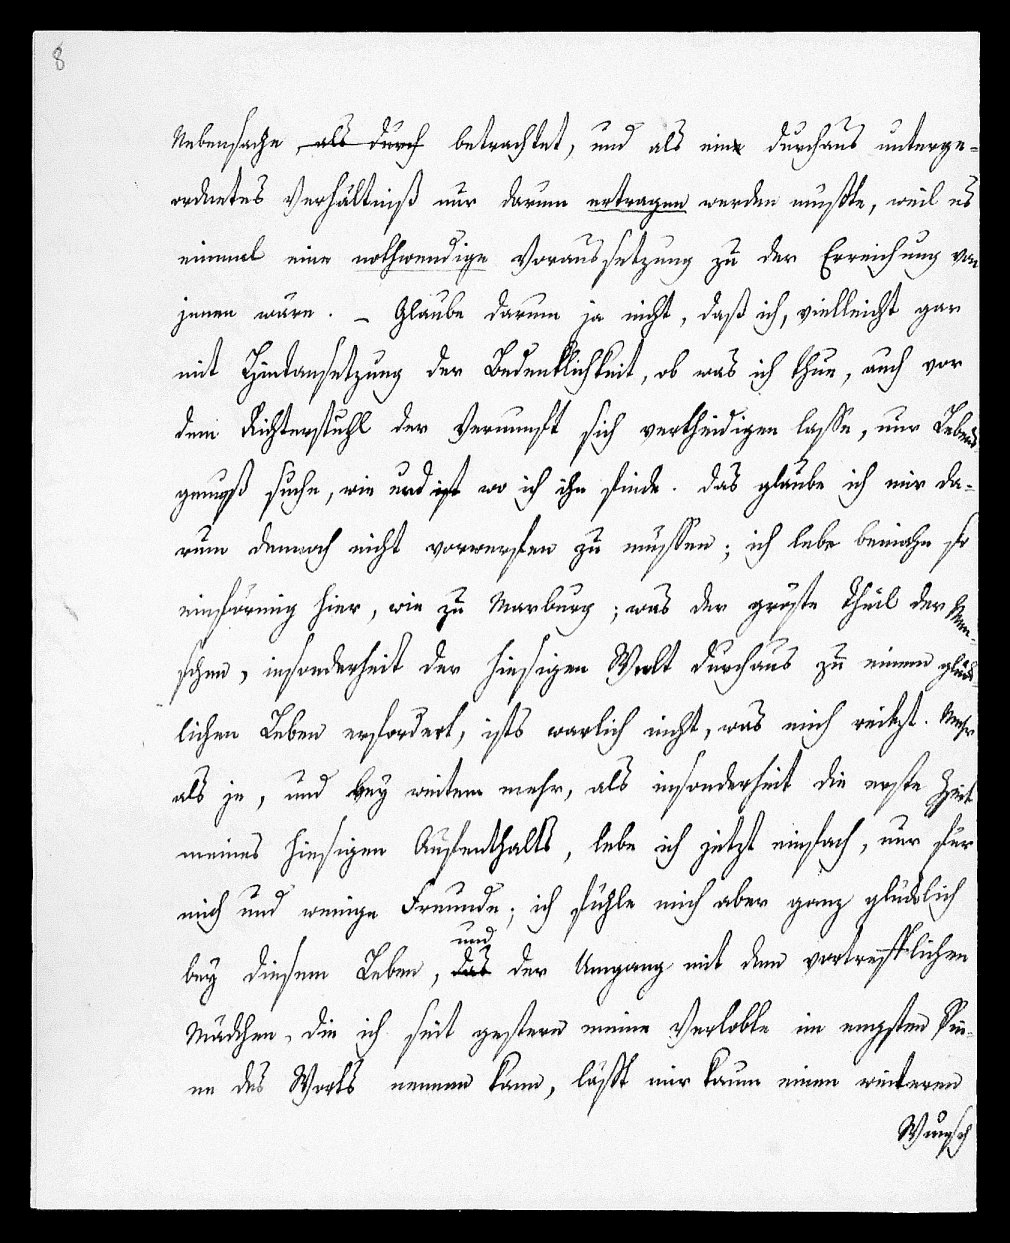 8
Nebensache, als durch betrachtet, und als eine durchaus unterge-
ordnetes Verhältniß nur darum ertragen werden mußte, weil es
einmal eine nothwendige Voraussetzung zu der Erreichung von
jenen wäre. – Glaube darum ja nicht, daß ich, vielleicht gar
mit Hintansetzung der Bedenklichkeit, ob was ich thue, auch vor
dem Richterstuhl der Vernunft sich vertheidigen lasse, nur Lebens-
genuß suche, wie und ist wo ich ihn finde. Das glaube ich mir da-
rum dennoch nicht vorwerfen zu müssen; ich lebe beinahe so
einförmig hier, wie zu Marburg; was der gröste Theil der Men-
schen, insonderheit der hiesigen Welt durchaus zu einem glück-
lichen Leben erfordert, ists warlich nicht, was mich reitzt. Mehr
als je, und bey weitem mehr, als insonderheit die erste Zeit
meines hiesigen Aufenthalts, lebe ich jetzt einfach, nur für
mich und wenige Freunde; ich fühle mich aber ganz glücklich
und
bey diesem Leben, das der Umgang mit dem vortrefflichen
Mädchen, die ich seit gestern meine Verlobte im engsten Sin-
ne des Worts nennen kann, läßt mir kaum einen weiteren
Wunsch